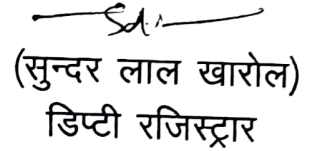 Sd/-
(सुन्दर लाल खारोल)
डिप्टी रजिस्ट्रार